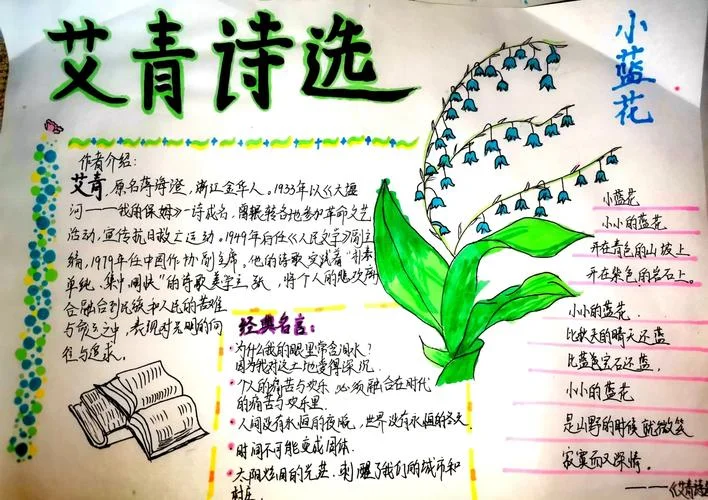 艾青诗选
小蓝花
作者介绍:
艾青,原名蒋海澄,浙江金华人。1933年以《大堰
河——我的保姆》一诗成名,辗转各地参加革命文艺
活动,宣传抗日救亡运动。1949年后任《人民文学》副主
编,1979年任中国作协副主席。他的诗歌实践着“朴素
单纯、集中、明快”的诗歌美学主张,将个人的悲欢
融合到民族和人民的苦难
与命运之中,表现对光明的向
往与追求。
经典名言:
·为什么我的眼里常含泪水?
因为我对这土地爱得深沉.
·个人的痛苦与欢乐,必须融合在时代
的痛苦与欢乐里.
·人间没有永恒的夜晚,世界没有永恒的冬天.
·时间不可能变成固体.
·太阳炫目的光芒,刺醒了我们的城市和
村庄.
小蓝花
小小的蓝花
开在青色的山坡上
开在紫色的岩石上。
小小的蓝花.
比秋天的晴天还蓝
比蓝宝石还蓝.
小小的蓝花
是山野的时候就微笑
寂寞而又深情。
——《艾青诗选